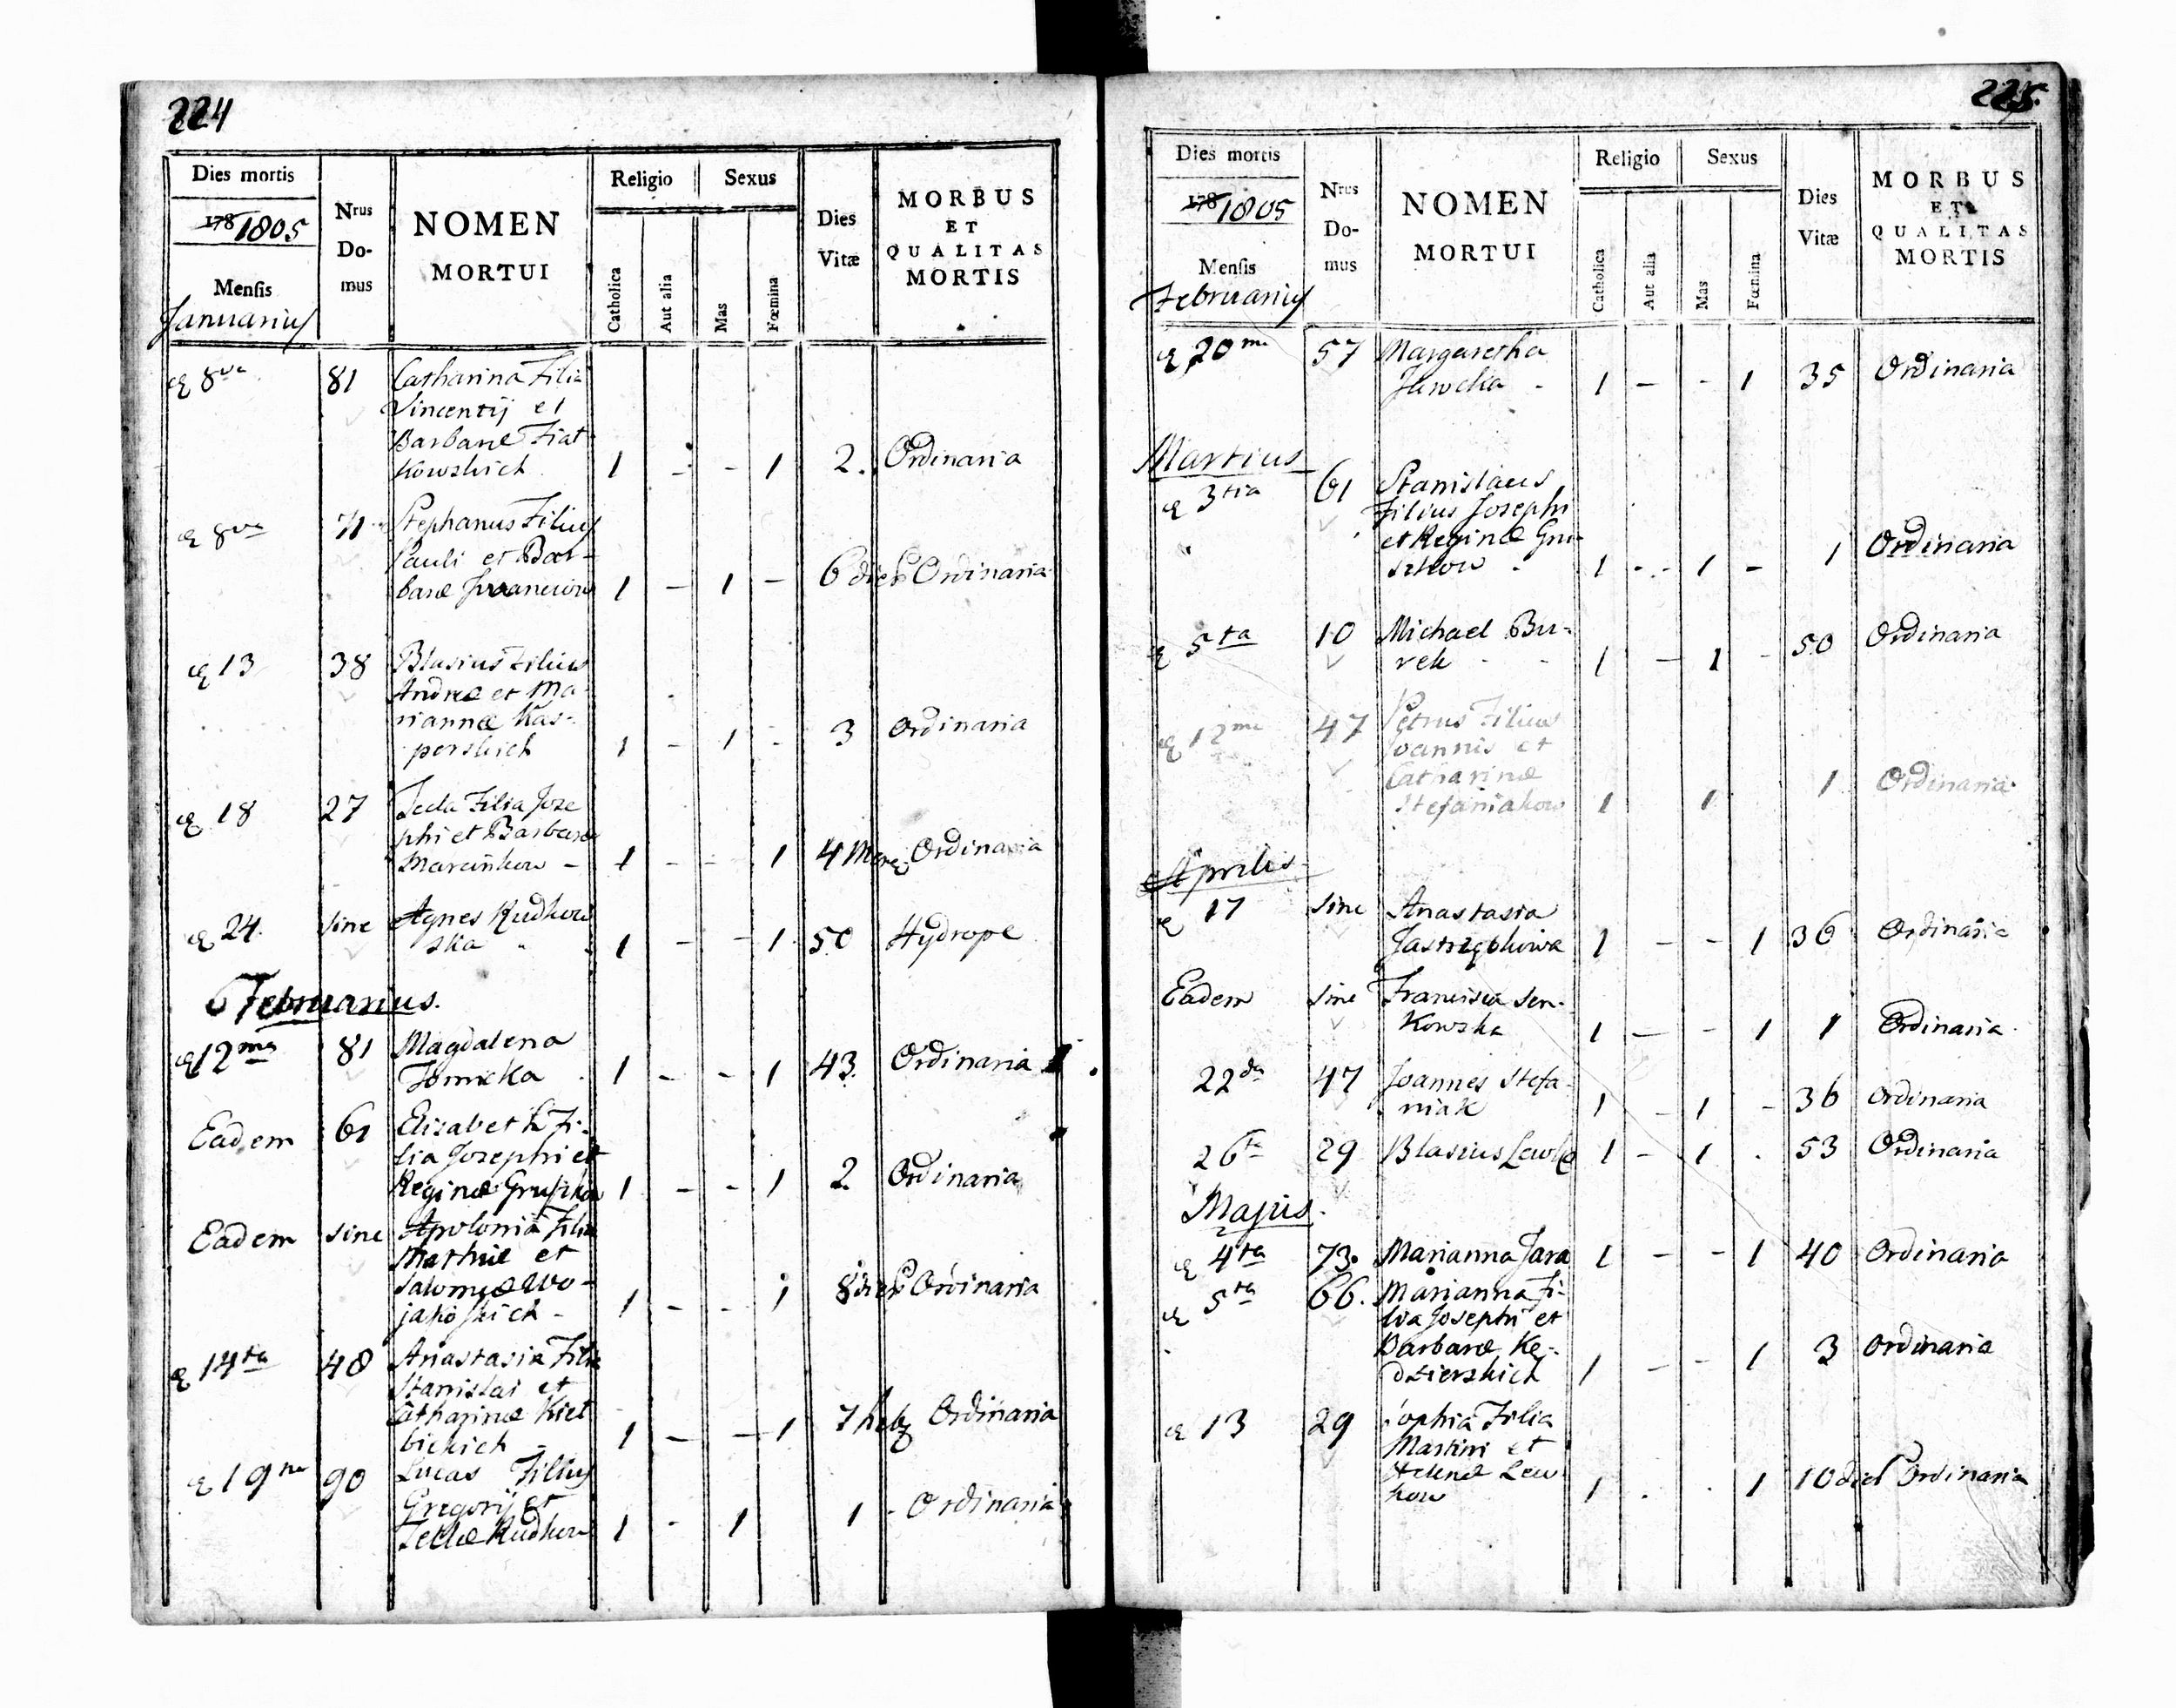 224
Dies mortis
178 1805
Mensis
Januarius
Nrus
Do-
mus
NOMEN
MORTUI
Religio
Catholica
Aut alia
Sexus
Mas
Fœmina
Dies
Vitæ
MORBUS
ET
QUALITAS
MORTIS
8va 81 Catharina Filia
Vincentij et
Barbaræ Fiat
kowskich 1 - - 1 2. Ordinaria
8va 71 Stephanus Filius
Pauli et Bar-
baræ 1 - 1 - 6 dies Ordinaria
13 38 Blasius Filius
Andreæ et Ma-
riannæ Kas-
perskich 1 - 1 - 3 Ordinaria
18 27 Tecla Filia Jose
phi et Barbaræ
Marcinkow - 1 - - 1 4 Ordinaria
24. sine Agnes Rudkow
ska 1 - - 1 50 Hydrope
Februarius.
12ma 81 Magdalena
Tomcka 1 - - 1 43. Ordinaria
Eadem 61 Elisabeth Fi-
lia Josephi et
Reginæ 1 - - 1 2 Ordinaria
Eadem sine Apolonia Filia
Mathiæ et
Salomeæ Wo-
1 - - 1 8 dies Ordinaria
14ta 48 Anastasia Filia
Stanislai et
Catharinæ Kieł
bickich - 1 - - 1 7 Ordinaria
19na 90 Lucas Filius
Gregorij et
Teclæ Rudkow 1 - 1 1 - Ordinaria
225
Dies mortis
178 1805
Mensis
Februarius
Nrus
Do-
mus
NOMEN
MORTUI
Religio
Catholica
Aut alia
Sexus
Mas
Fœmina
Dies
Vitæ
MORBUS
ET
QUALITAS
MORTIS
20ma 57 Margaretha
1 - - 1 35 Ordinaria
Martius
3tia 61 Stanislaus
Filius Josephi
et Reginæ Gru-
szkow 1 - 1 - 1 Ordinaria
5ta 10 Michael Bu-
rek - - 1 - 1 - 50 Ordinaria
12ma 47 Petrus Filius
Joannis et
Catharinæ
Stefaniakow 1 1 1 Ordinaria
Aprilis
17 sine Anastasia
1 - - 1 36 Ordinaria
Eadem sine Francisca Sen-
kowska 1 - - 1 1 Ordinaria
22da 47 Joannes Stefa-
niak 1 - 1 - 36 Ordinaria
26ta 29 Blasius 1 - 1 . 53 Ordinaria
Majus.
4ta 73. Marianna Jara 1 - - 1 40 Ordinaria
5ta 66. Marianna Fi-
lia Josephi et
Barbaræ Ke-
dzierskich 1 - - 1 3 Ordinaria
13 29 Sophia Filia
Martini et
Helenæ Lew
kow 1 . . 1 10 dies Ordinaria